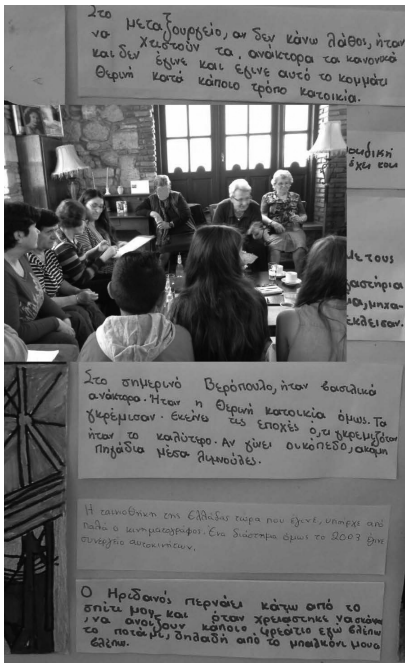 Στο μεταξουργείο, αν δεν κάνω λάθος, ήταν
να χτιστούν τα ανάκτορα τα κανονικά
και δεν έγινε και έγινε αυτό το κομμάτι
θερινή κατά κάποιο τρόπο κατοικία.
έχει του
Με τους
μηχα-
έκλεισαν.
Στο σημερινό Βερόπουλο, ήταν βασιλικά
ανάκτορα. Ήταν η θερινή κατοικία όμως. Τα
γκρέμισαν. Εκείνες τις εποχές ό,τι γκρεμιζόταν
ήταν το καλύτερο. Αν γίνει οικόπεδο, ακόμη
πηγάδια μέσα λιμνούλες.
Η ταινιοθήκη της Ελλάδας τώρα που έγινε, υπήρχε από
παλιά ο κινηματογράφος. Ένα διάστημα όμως το 2003 έγινε
συνεργείο αυτοκινήτων.
Ο Ηριδανός περνάει κάτω από το
σπίτι μου και όταν χρειάστηκε να σκάψω
, να ανοίξουν κάποιο φρεάτιο εγώ έβλεπα
το ποτάμι, δηλαδή από το μπαλκόνι μου να
βλέπω.